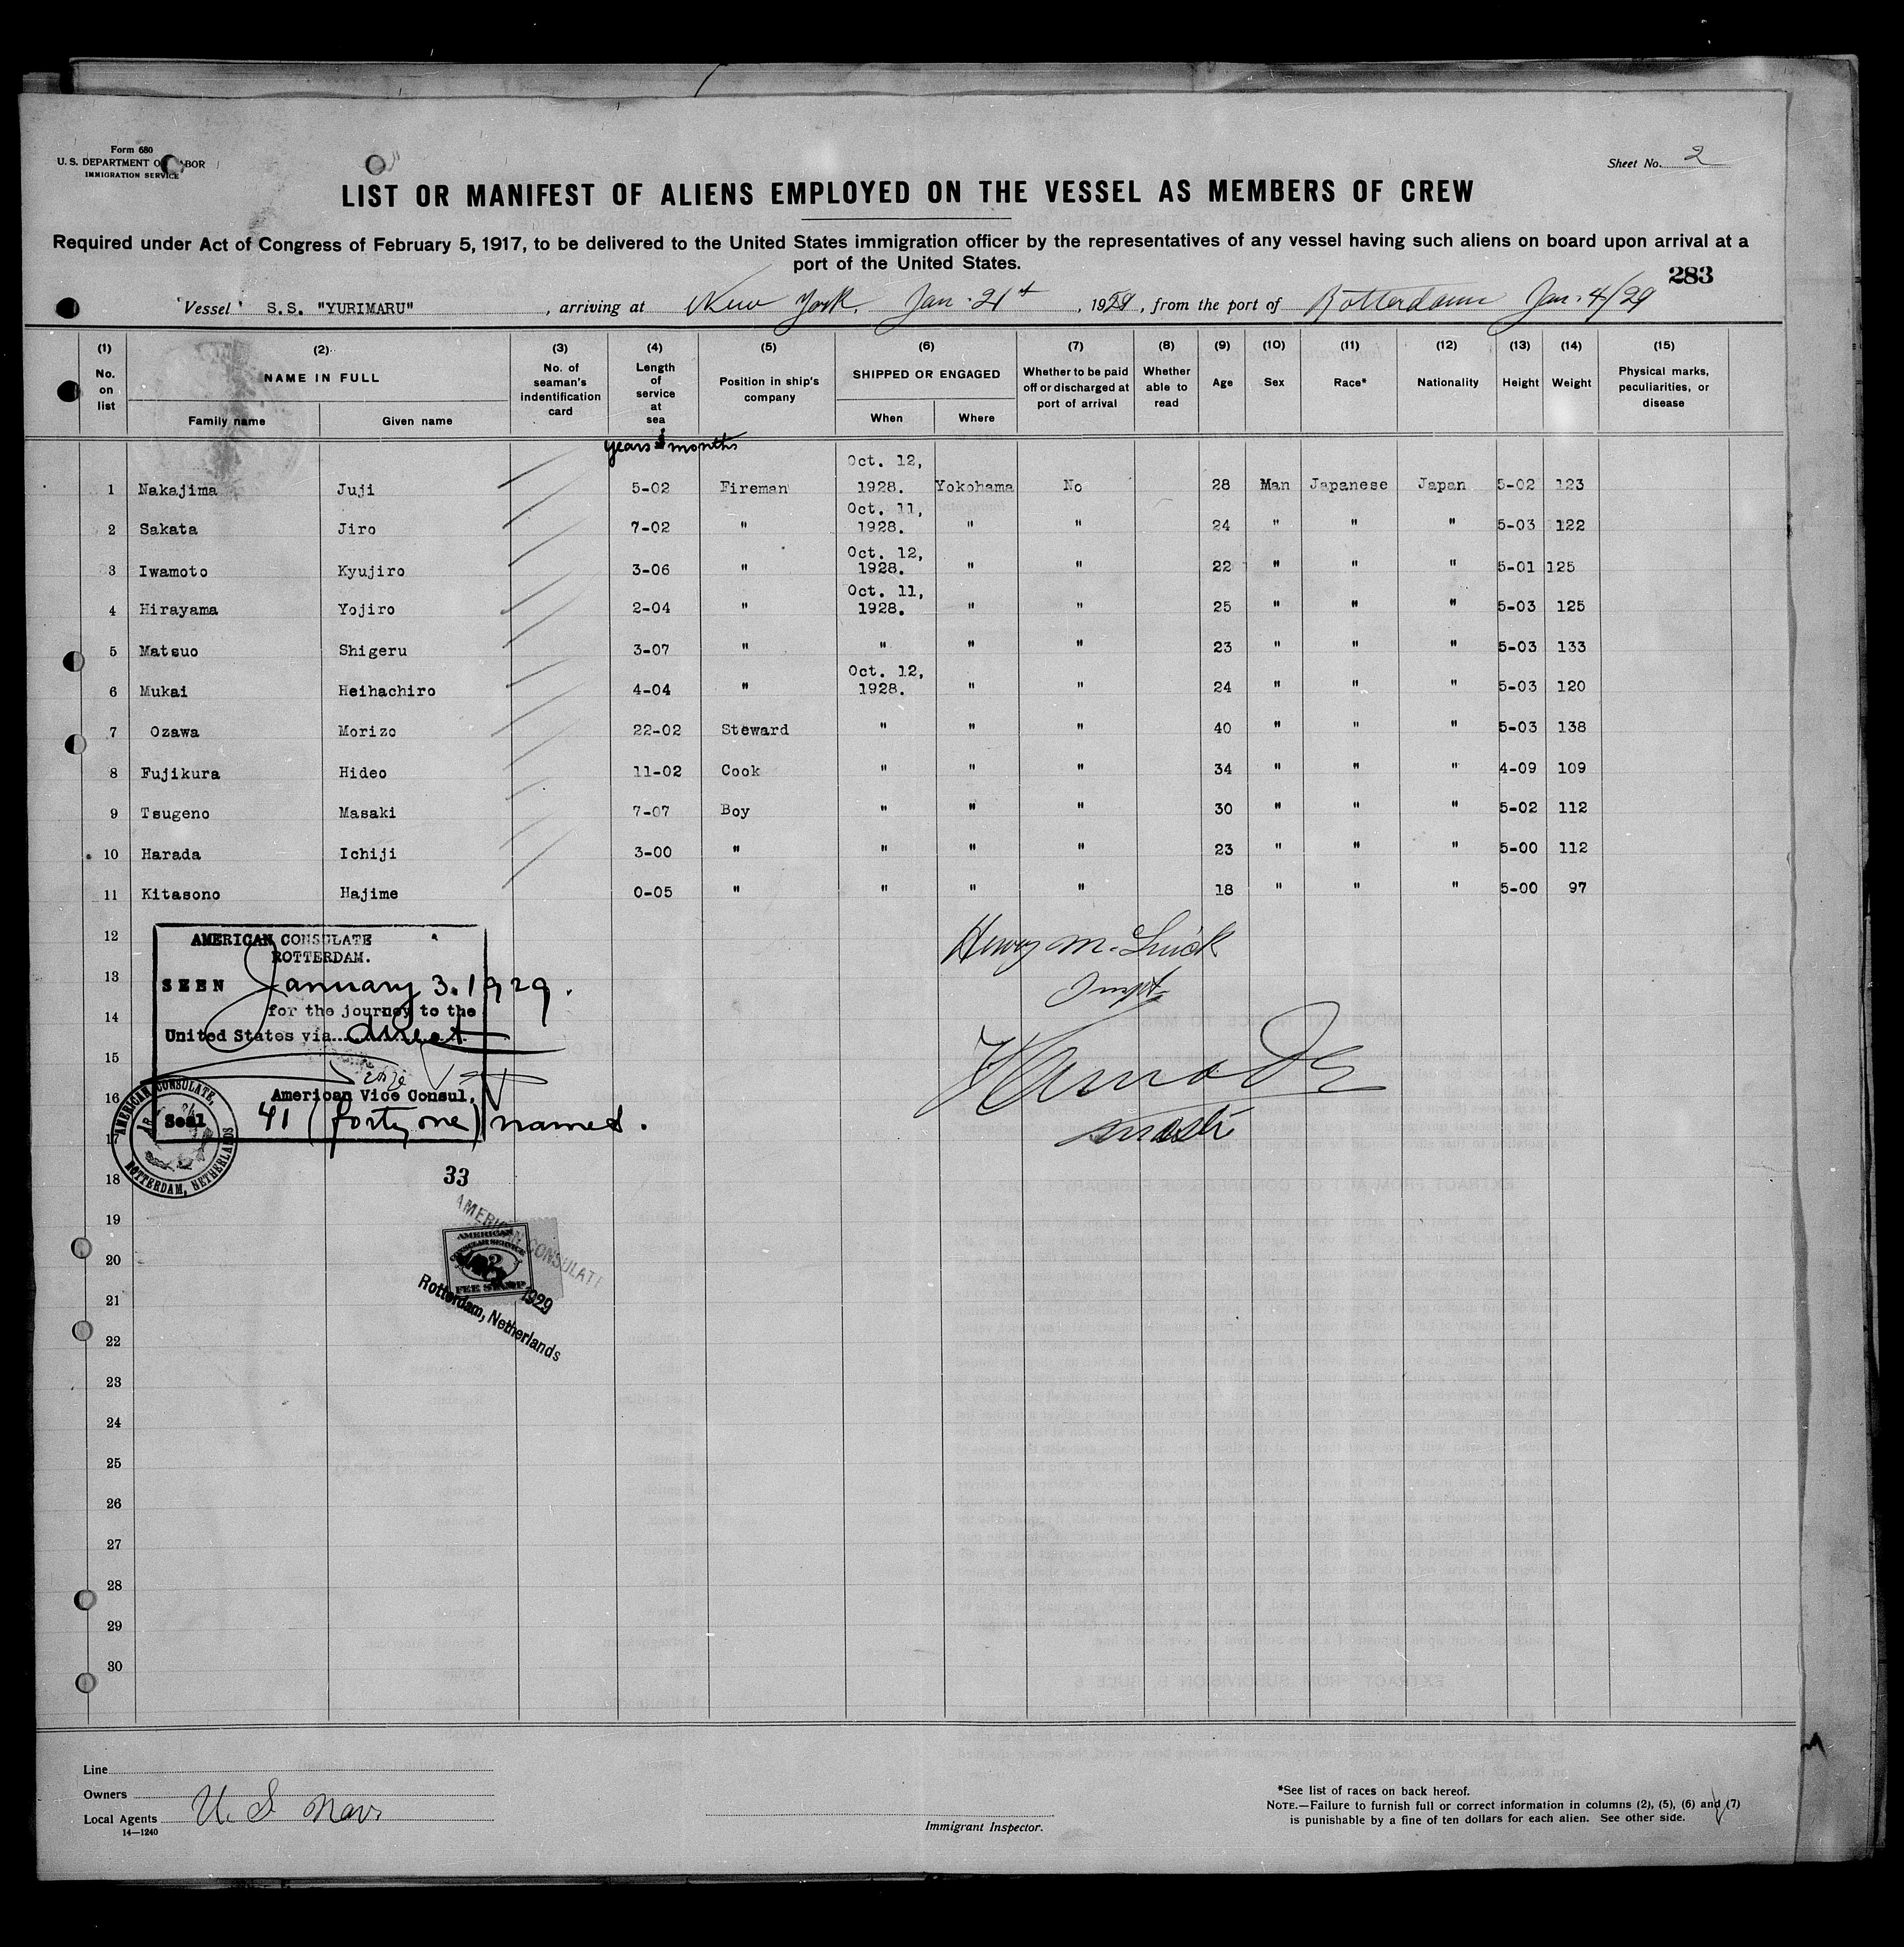 Form 680
U. S. DEPARTMENT OF LABOR
IMMIGRATION SERVICE
Sheet No. 2
LIST OR MANIFEST OF ALIENS EMPLOYED ON THE VESSEL AS MEMBERS OF CREW
Required under Act of Congress of February 5, 1917, to be delivered to the United States immigration officer by the representatives of any vessel having such aliens on board upon arrival at a
port of the United States.
283
Vessel S.S. "YURIMARU", arriving at New York, Jan. 21st, 1929, from the port of Rotterdam Jan. 4/29
(1) No. on list (2) NAME IN FULL Family name Given name (3) No. of seaman's indentification card (4) Length of service at sea (5) Position in ship's company (6) SHIPPED OR ENGAGED When Where (7) Whether to be paid off or discharged at port of arrival (8) Whether able to read (9) Age (10) Sex (11) Race* (12) Nationality (13) Height (14) Weight (15) Physical marks, peculiarities, or disease
years & months
1 Nakajima Juji 5-02 Fireman Oct. 12, 1928. Yokohama No 28 Man Japanese Japan 5-02 123
2 Sakata Jiro 7-02 " Oct. 11, 1928. " " 24 " " " 5-03 122
3 Iwamoto Kyujiro 3-06 " Oct. 12, 1928. " " 22 " " " 5-01 125
4 Hirayama Yojiro 2-04 " Oct. 11, 1928. " " 25 " " " 5-03 125
5 Matsuo Shigeru 3-07 " " " " 23 " " " 5-03 133
6 Mukai Heihachiro 4-04 " Oct. 12, 1928. " " 24 " " " 5-03 120
7 Ozawa Morizo 22-02 Steward " " " 40 " " " 5-03 138
8 Fujikura Hideo 11-02 Cook " " " 34 " " " 4-09 109
9 Tsugeno Masaki 7-07 Boy " " " 30 " " " 5-02 112
10 Harada Ichiji 3-00 " " " " 23 " " " 5-00 112
11 Kitasono Hajime 0-05 " " " " 18 " " " 5-00 97
12
13
14
15
16
17
18
19
20
21
22
23
24
25
26
27
28
29
30
AMERICAN CONSULATE
ROTTERDAM.
SEEN January 3. 1929.
for the journey to the
United States via direct
American Vice Consul,
Seal 41 (forty one) names.
AMERICAN CONSULATE,
ROTTERDAM, NETHERLANDS
Henry M.
33
AMERICAN CONSULATE
AMERICAN
CONSULAR SERVICE
2
FEE STAMP
1929
Rotterdam, Netherlands
Line
Owners
Local Agents U. S. Navi
14—1240
Immigrant Inspector.
*See list of races on back hereof.
NOTE.—Failure to furnish full or correct information in columns (2), (5), (6) and (7)
is punishable by a fine of ten dollars for each alien. See other side.